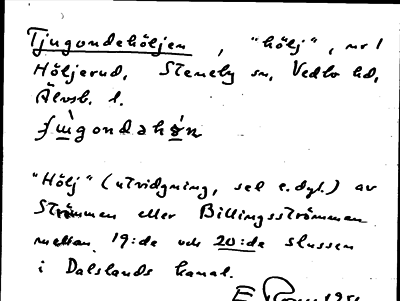 Tjugondehöljen, "hölj", nr 1
Höljerud, Steneby sn, Vedbo hd,
Älvsb. l.
"Hölj" (utvidgning, sel e.dyl.) av
Strömmen eller Billingsströmmen
mellan 19:de och 20:de slussen
i Dalslands kanal.